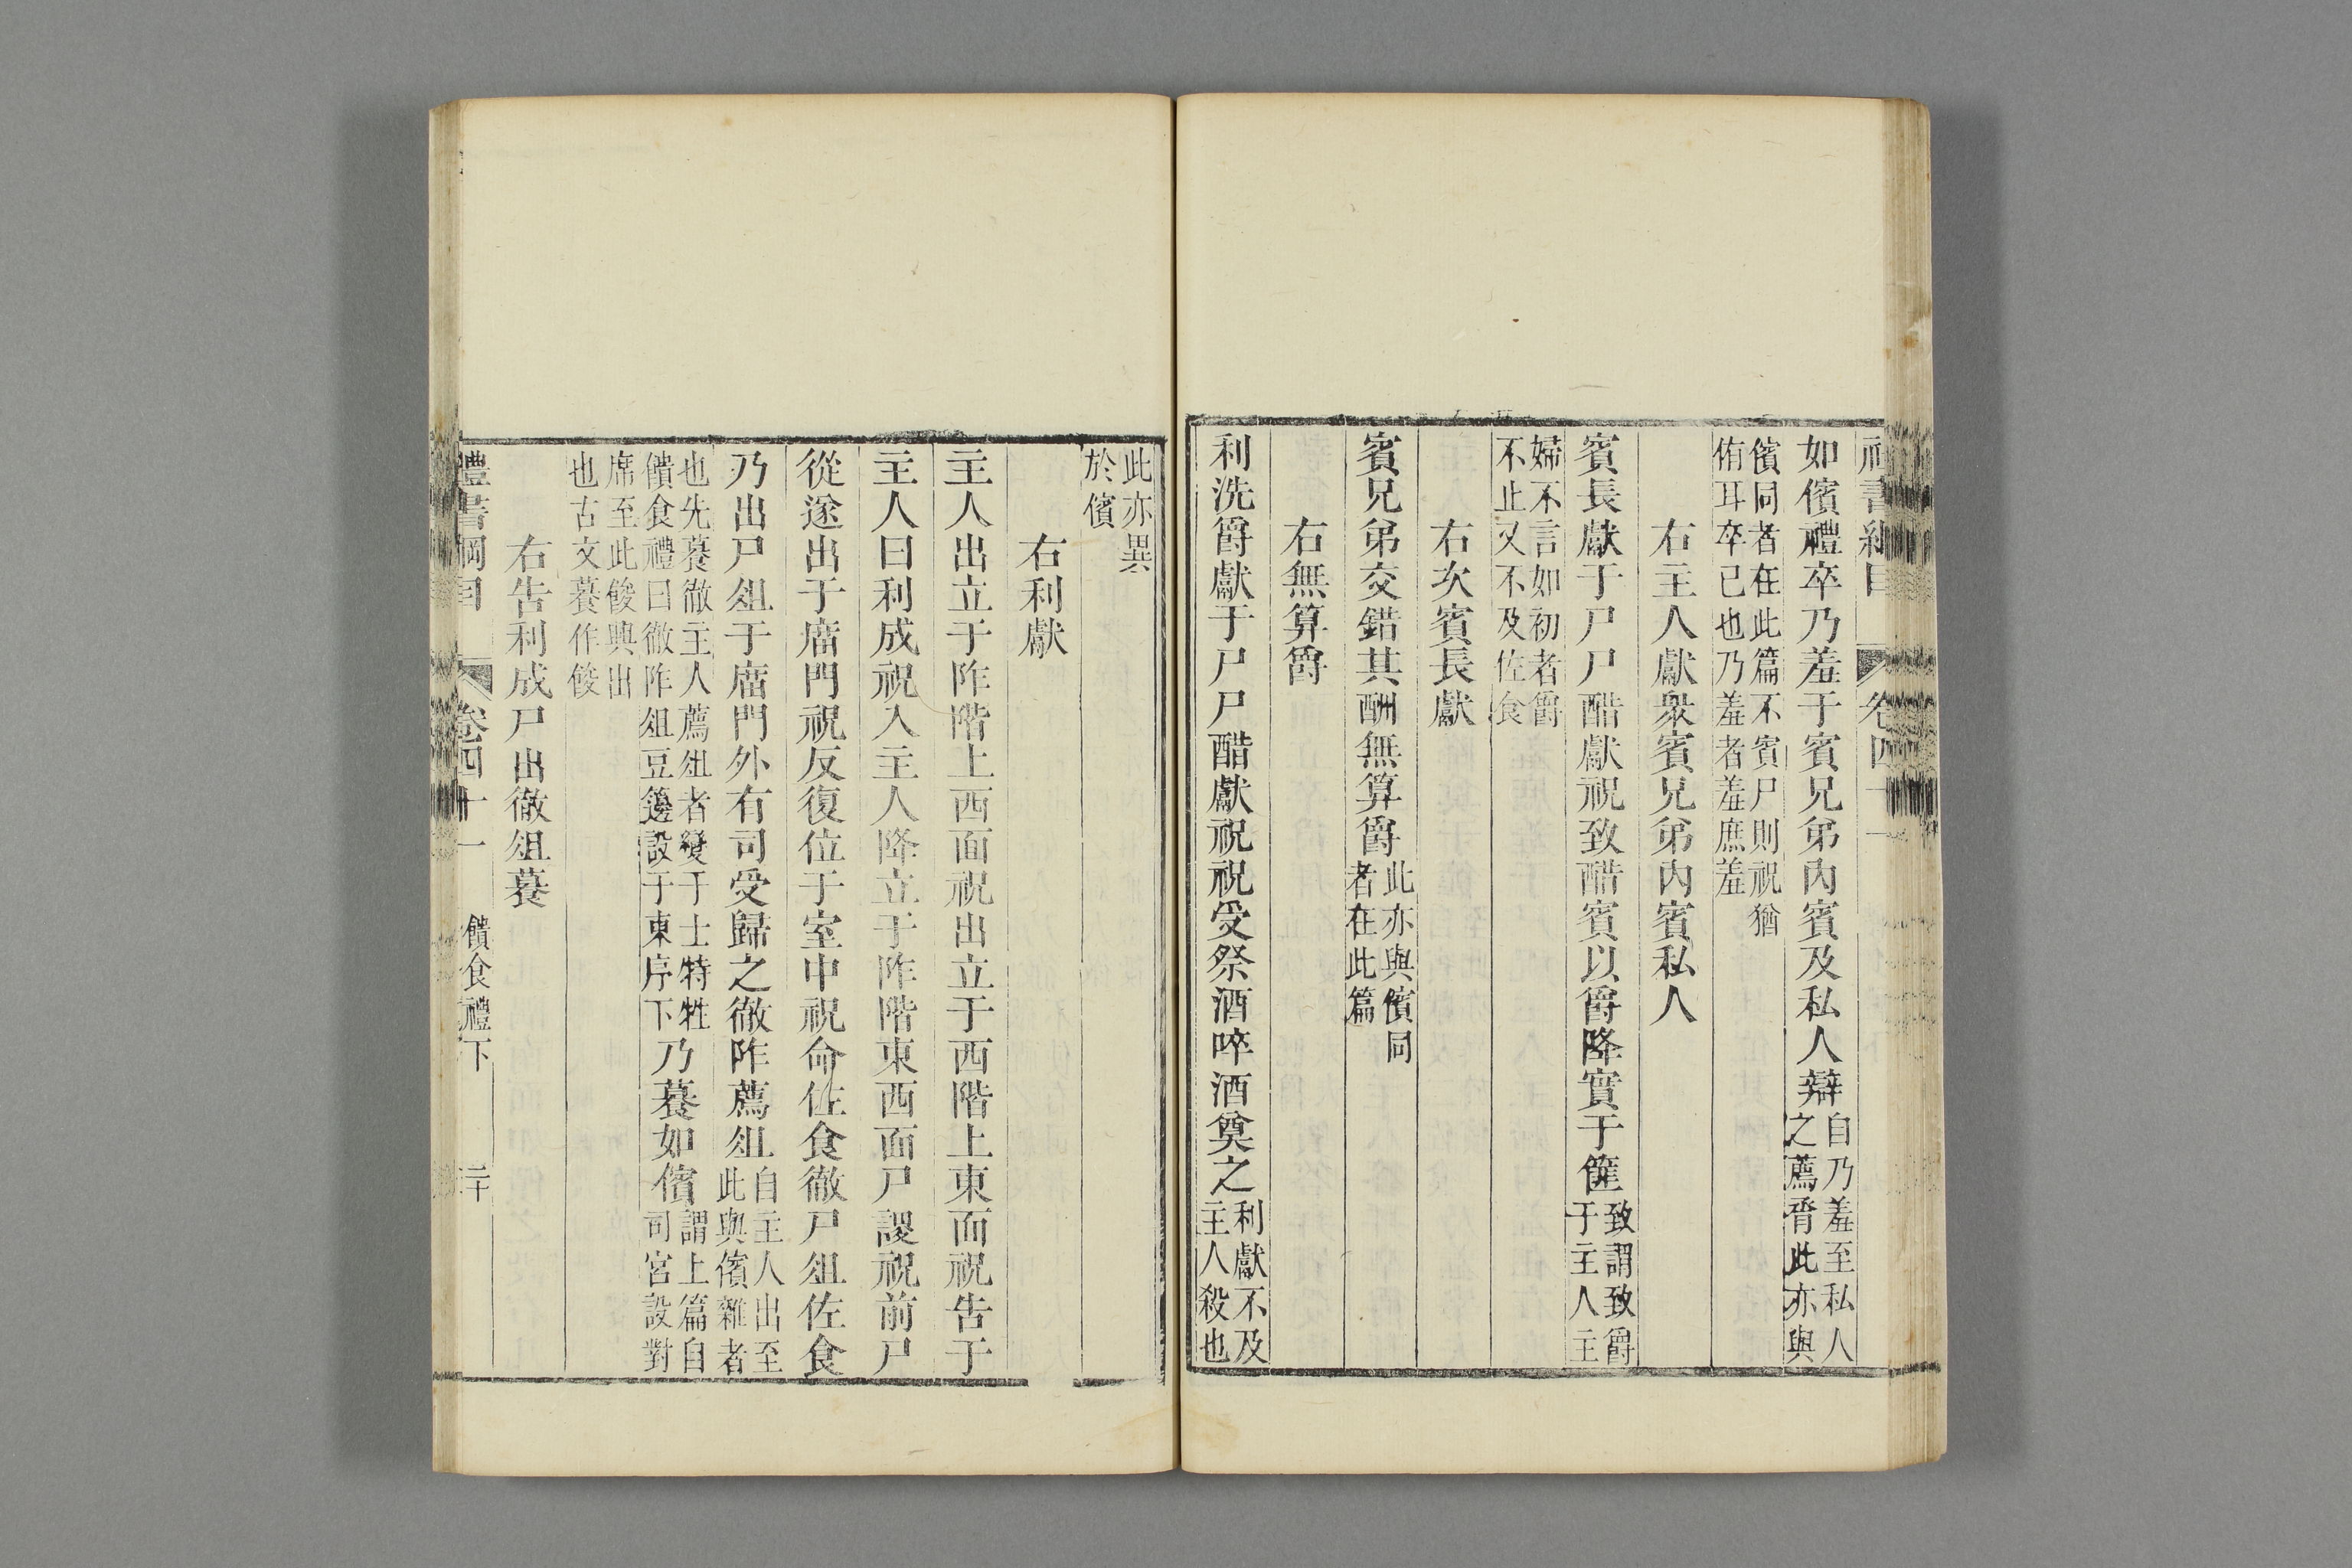 卷四十一
如儐禮卒乃羞于賓兄弟內賓及私人辯自乃羞至私人之薦脀此亦與
儐同者在此篇不賓尸則祝猶侑耳卒已也乃羞者羞庶羞
右主人獻衆賓兄弟內賓私人
賓長獻于尸尸酷獻祝致酷賓以爵降實于篚致謂致爵于主人主
婦不言如初者爵不止又不及佐食
右次賓長獻
賓兄弟交錯其酬無算爵此亦與儐同者在此篇
右無算爵
利洗爵獻于尸尸酷獻祝祝受祭酒啐酒奠之利獻不及主人殺也
此亦異於儐
右利獻
主人出立于阼階上西面祝出立于西階上東面祝告于
主人曰利成祝入主人降立于阼階東西面尸謖祝前尸
從遂出于庿門祝反復位于室中祝命佐食徹尸俎佐食
乃出尸俎于庿門外有司受歸之徹阼薦俎自主人出至此與儐雜者
也先䉵徹主人薦俎者變于士特牲饋食禮曰徹阼俎豆籩設于東序下乃䉵如儐謂上篇自司宮設對
席至此餕興出也古文䉵作餕
右告利成尸出徹俎䉵
禮書綱目 卷四十一 饋食禮下 二十